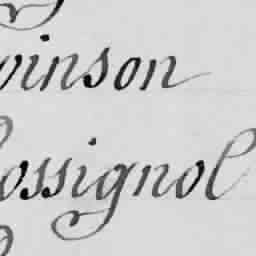 vinson
ossignol